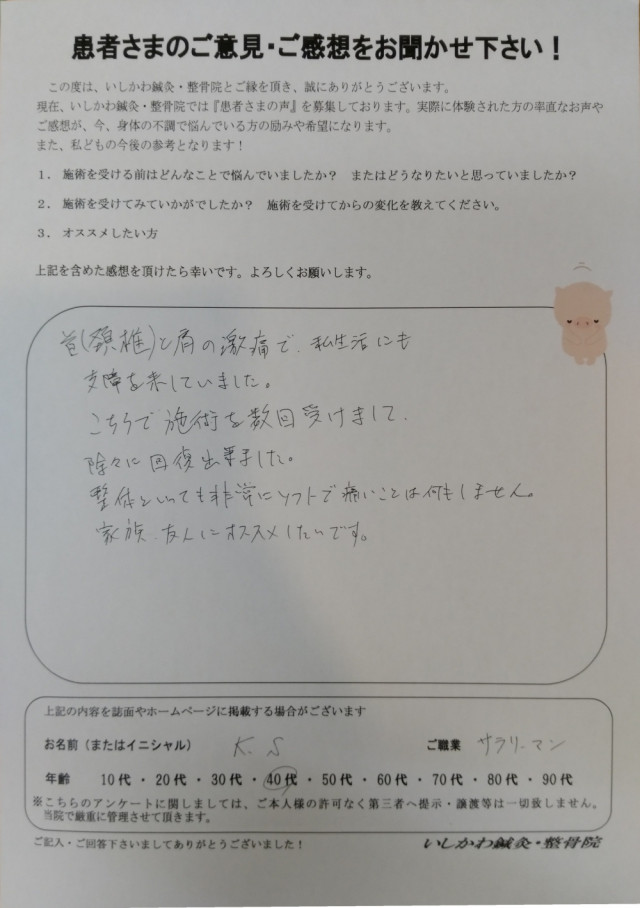 患者さまのご意見・ご感想をお聞かせ下さい！
この度は、いしかわ鍼灸・整骨院とご縁を頂き、誠にありがとうございます。
現在、いしかわ鍼灸・整骨院では『患者さまの声』を募集しております。実際に体験された方の率直なお声や
ご感想が、今、身体の不調で悩んでいる方の励みや希望になります。
また、私どもの今後の参考となります！
1．施術を受ける前はどんなことで悩んでいましたか？　またはどうなりたいと思っていましたか？
2．施術を受けてみていかがでしたか？　施術を受けてからの変化を教えてください。
3．オススメしたい方
上記を含めた感想を頂けたら幸いです。よろしくお願いします。
首(頚椎)と肩の激痛で、私生活にも
支障を来していました。
こちらで施術を数回受けまして、
除々に回復出来ました。
整体といっても非常にソフトで痛いことは何もしません。
家族、友人にオススメしたいです。
上記の内容を誌面やホームページに掲載する場合がございます
お名前（またはイニシャル）　K.S　ご職業　サラリーマン
年齢　10代・20代・30代・40代・50代・60代・70代・80代・90代
※こちらのアンケートに関しましては、ご本人様の許可なく第三者へ提示・譲渡等は一切致しません。
当院で厳重に管理させて頂きます。
ご記入・ご回答下さいましてありがとうございました！　いしかわ鍼灸・整骨院